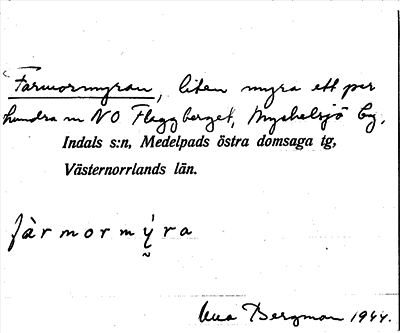 Farmormyran, liten myra ett par
hundra m NO Flaggberget, Myckelsjö by,
Indals s:n, Medelpads östra domsaga tg,
Västernorrlands län.
fàrmormý̰ra
Bergman 1944.